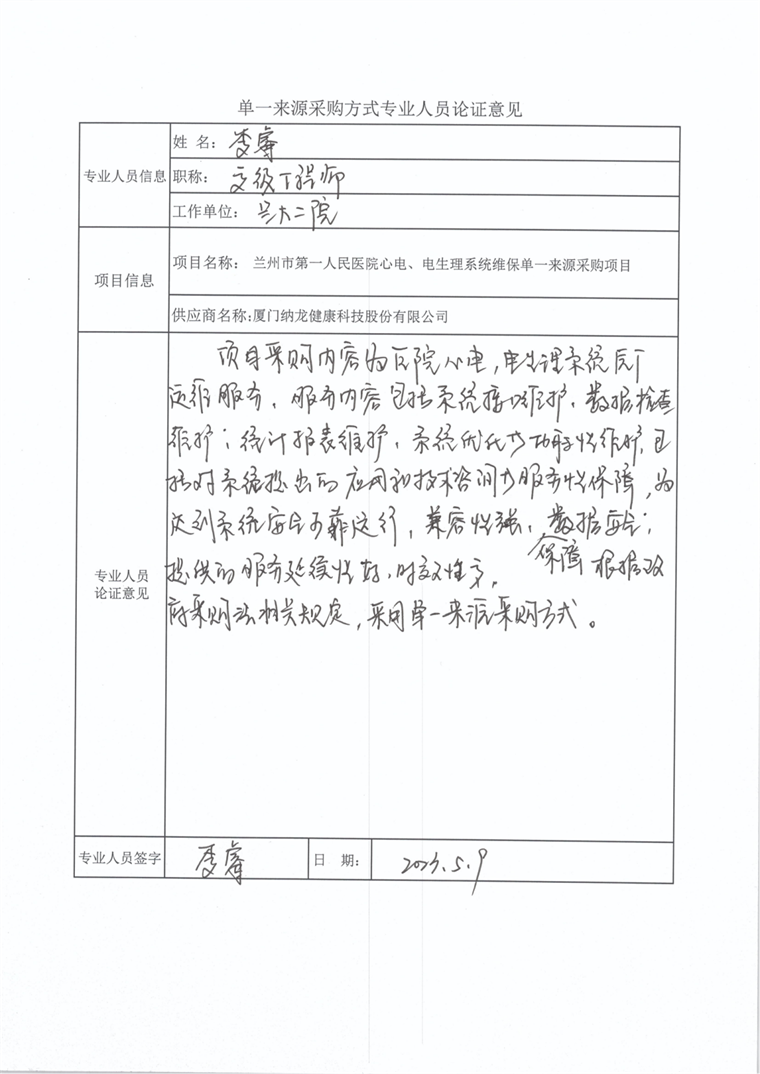 单一来源采购方式专业人员论证意见
专业人员信息
姓 名：李睿
职称：高级工程师
工作单位：兰大二院
项目信息
项目名称： 兰州市第一人民医院心电、电生理系统维保单一来源采购项目
供应商名称:厦门纳龙健康科技股份有限公司
专业人员
论证意见
项目采购内容为医院心电，电生理系统
运维服务，服务内容包括系统接口维护，数据检查
维护；统计报表维护，系统优化与功能性维护，包
括对系统提出的应用和技术咨询与服务性保障，为
达到系统安全可靠运行，兼容性强，数据安全；
提供的服务延续性好，时效性高，保障 根据政
府采购法相关规定，采用单一来源采购方式。
专业人员签字
李睿
日 期：
5.9